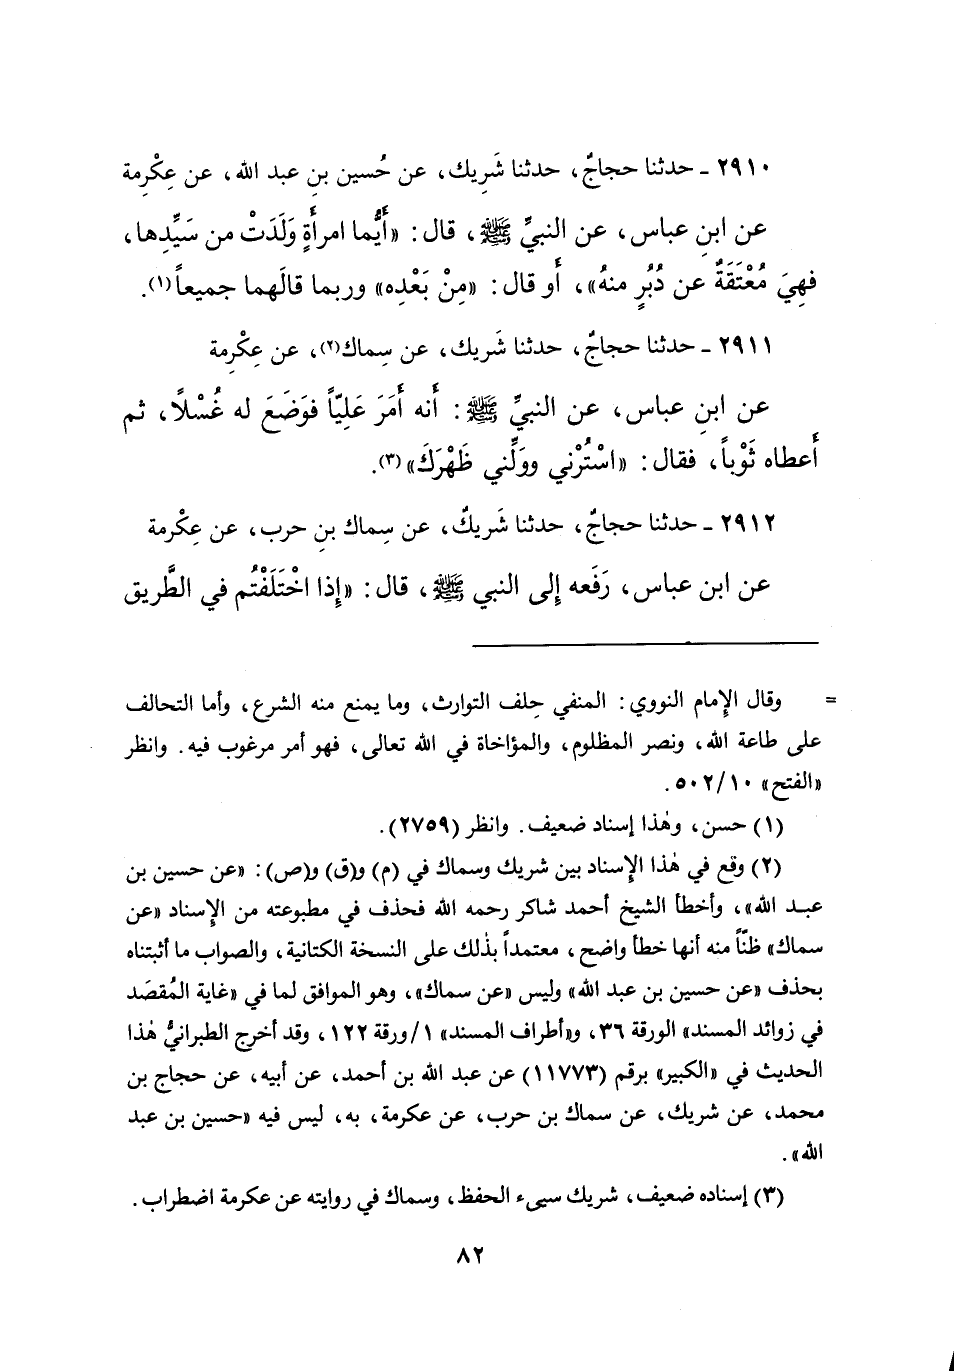 ٢٩١٠ ـ حدثنا حجاجٌ، حدثنا شَرِيك، عن حُسين بنِ عبد الله، عن عِكْرمة
عن ابنِ عباس، عن النبيِّ ﷺ، قال: «أَيُّما امرأَةٍ وَلَدَتْ من سَيِّدِها،
فهِيَ مُعْتَقَةٌ عن دُبُرٍ منهُ»، أَو قال: «مِنْ بَعْدِه» وربما قالَهما جميعاً(١).
٢٩١١ ـ حدثنا حجاجٌ، حدثنا شَرِيك، عن سِماك(٢)، عن عِكْرِمة
عن ابنِ عباس، عن النبيِّ ﷺ: أَنه أَمَرَ عَلِيّاً فوَضَعَ له غُسْلًا، ثم
أَعطاه ثَوْباً، فقال: «اسْتُرْني وولِّني ظَهْرَكَ»(٣).
٢٩١٢ ـ حدثنا حجاجٌ، حدثنا شَرِيكٌ، عن سِماك بنِ حرب، عن عِكْرمة
عن ابن عباس، رَفَعه إِلى النبي ﷺ، قال: «إِذا اخْتَلَفْتُم في الطَّريق
= وقال الإِمام النووي: المنفي حِلف التوارث، وما يمنع منه الشرع، وأما التحالف
على طاعة الله، ونصر المظلوم، والمؤاخاة في الله تعالى، فهو أمر مرغوب فيه. وانظر
«الفتح» ٥٠٢/١٠.
(١) حسن، وهٰذا إسناد ضعيف. وانظر (٢٧٥٩).
(٢) وقع في هٰذا الإِسناد بين شريك وسماك في (م) و(ق) و(ص): «عن حسين بن
عبد الله»، وأخطأ الشيخ أحمد شاكر رحمه الله فحذف في مطبوعته من الإِسناد «عن
سماك» ظنّاً منه أنها خطأ واضح، معتمداً بذٰلك على النسخة الكتانية، والصواب ما أثبتناه
بحذف «عن حسين بن عبد الله» وليس «عن سماك»، وهو الموافق لما في «غاية المُقصَد
في زوائد المسند» الورقة ٣٦، و«أطراف المسند» ١/ورقة ١٢٢، وقد أخرج الطبرانيُّ هٰذا
الحديث في «الكبير» برقم (١١٧٧٣) عن عبد الله بن أحمد، عن أبيه، عن حجاج بن
محمد، عن شريك، عن سماك بن حرب، عن عكرمة، به، ليس فيه «حسين بن عبد
الله».
(٣) إسناده ضعيف، شريك سيىء الحفظ، وسماك في روايته عن عكرمة اضطراب.
٨٢